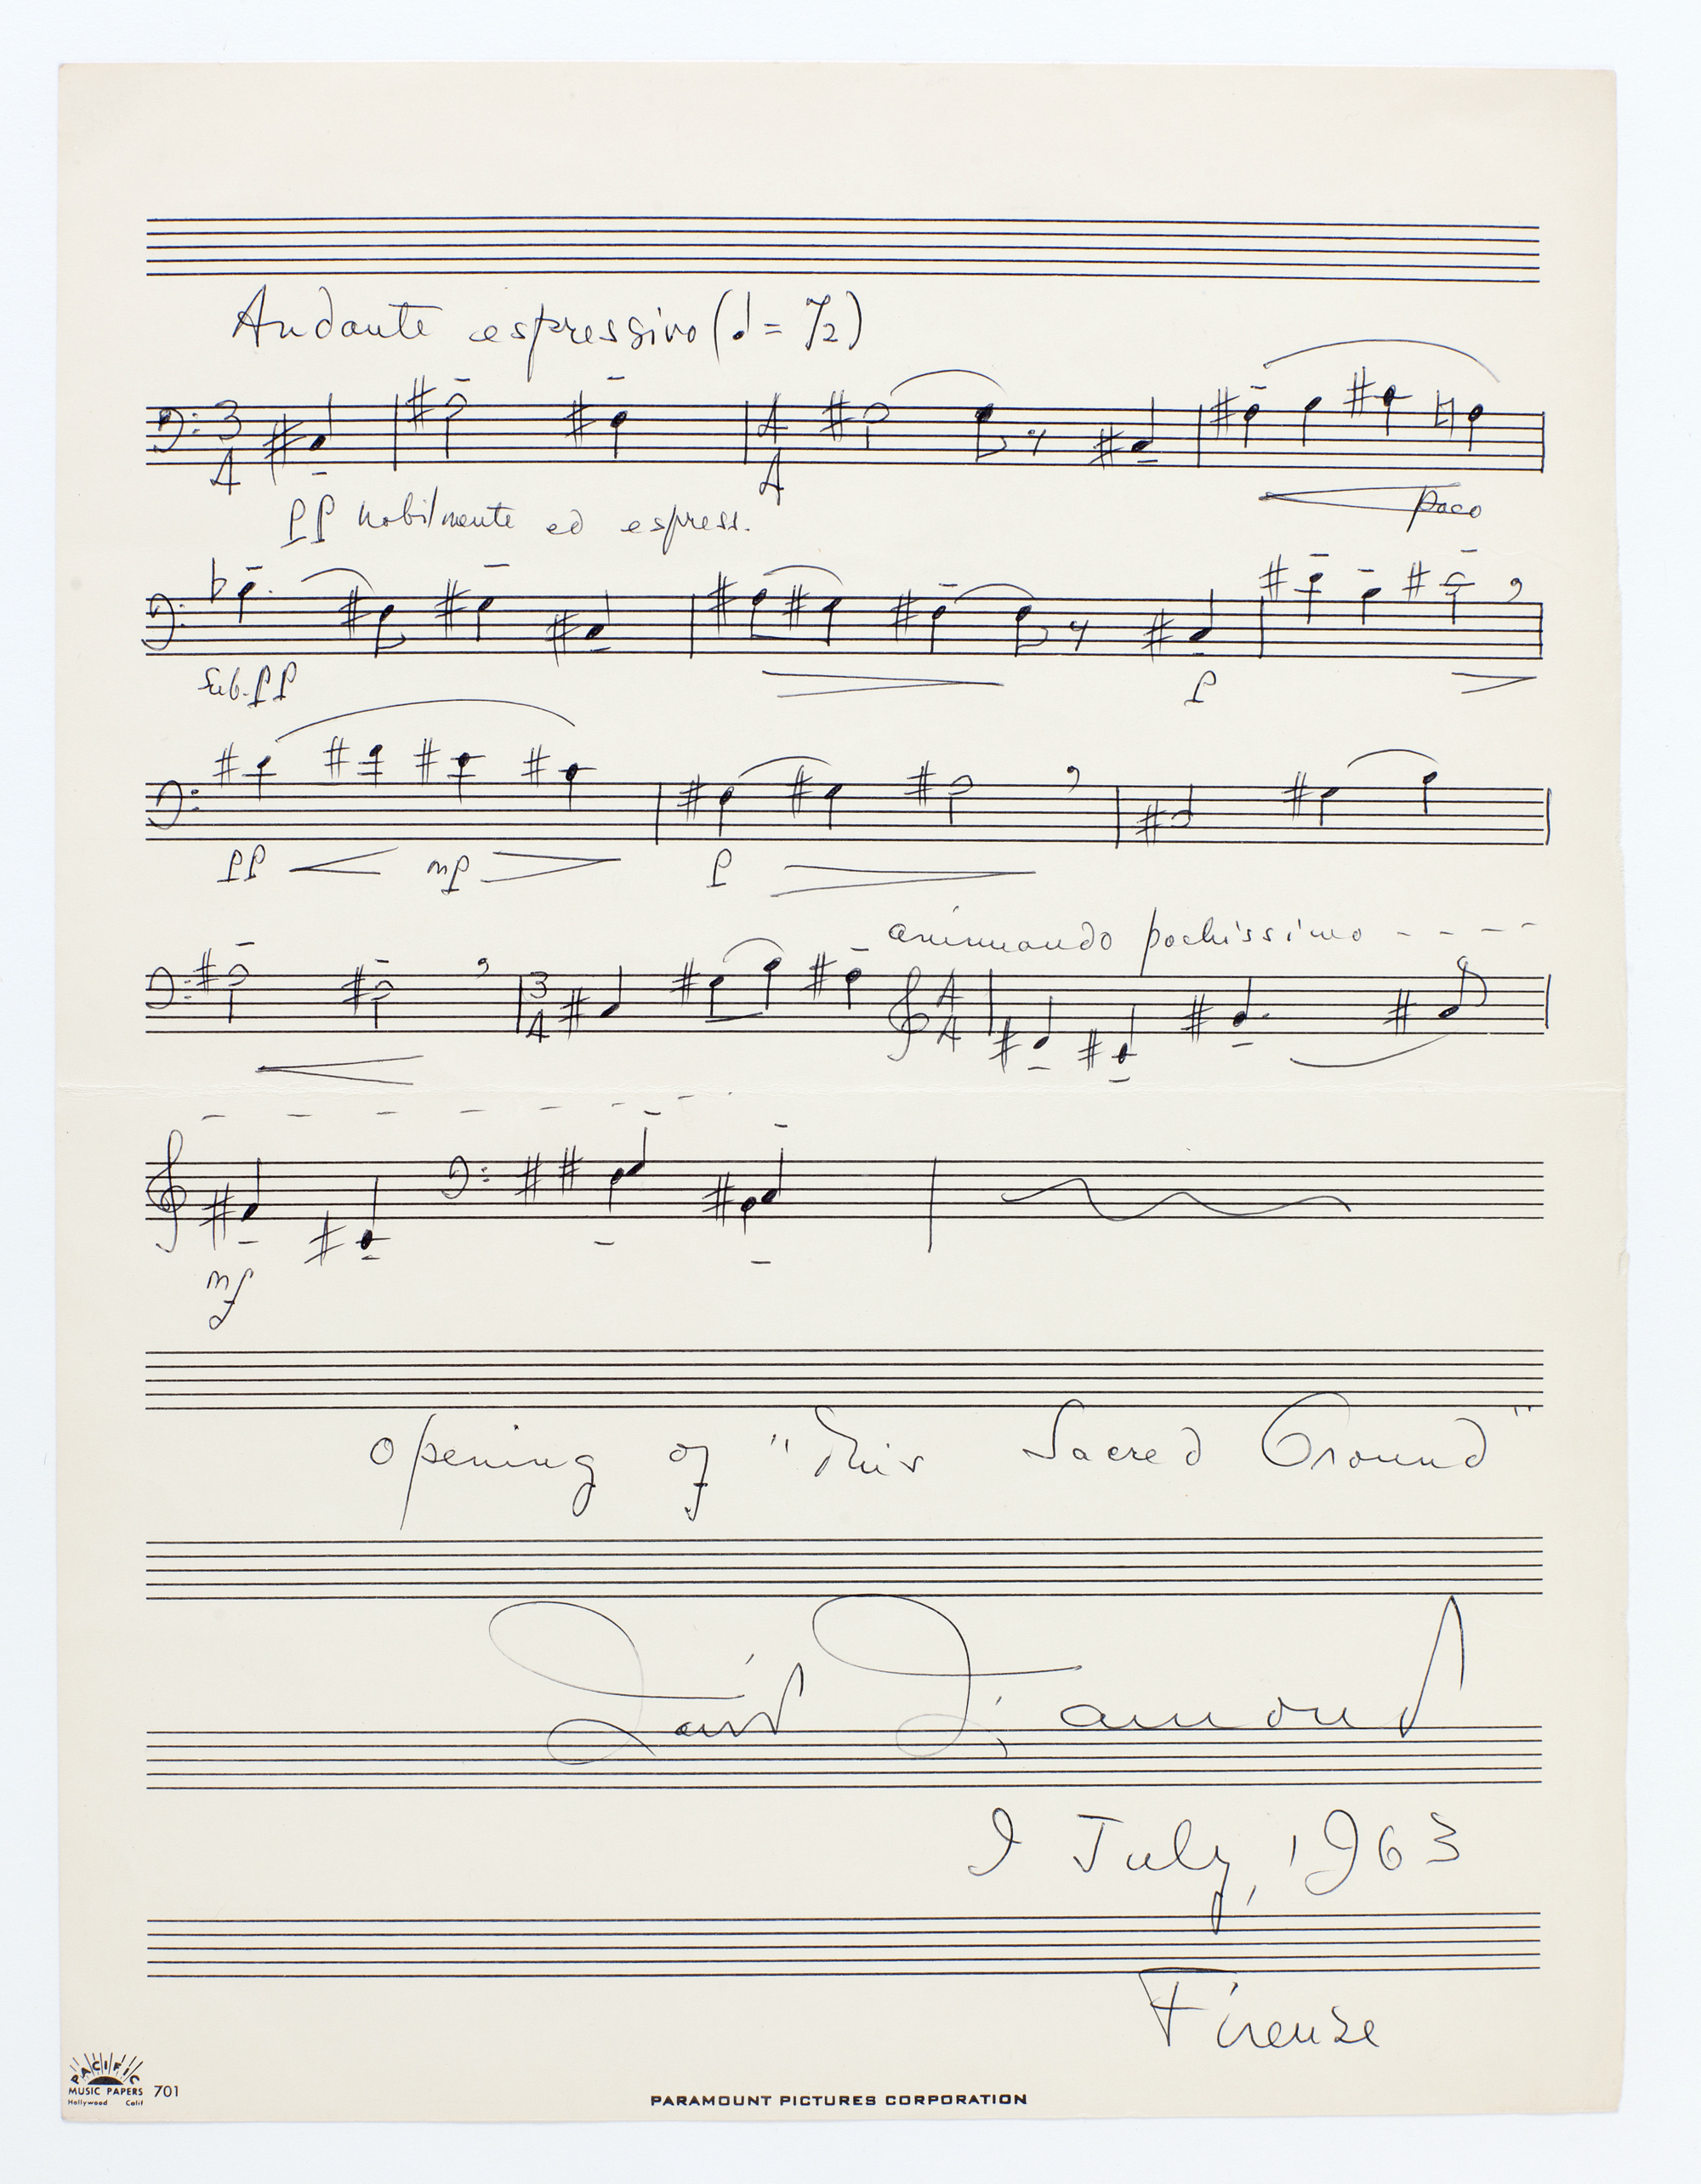 Andante espressivo (♩ = 72)
3
4
4
4
pp nobilmente ed espress.
poco
sub. pp
p
pp mp p
animando pochissimo - - - -
3
4
4
4
mf
opening of "This Sacred Ground"
David Diamond
9 July, 1963
Firenze
PACIFIC
MUSIC PAPERS 701
Hollywood Calif
PARAMOUNT PICTURES CORPORATION